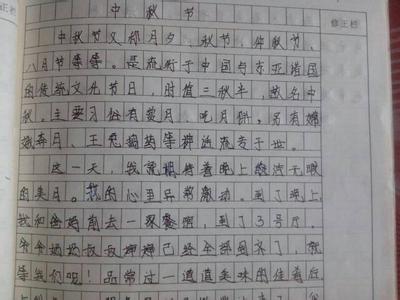 修正栏
中秋节
中秋节又称月夕、秋节、仲秋节、
八月节等等。是流行于中国与东亚诸国
的传统文化节日,时值三秋半,故名中
秋。主要习俗有赏月、吃月饼,另有嫦
娥奔月、玉兔捣药等神话流传于世。
这一天,我就期待着晚上皎洁无暇
的美月。我的心里异常激动。到了晚上
我和爸妈前去一家餐厅,到了3号厅。
爷爷奶奶叔叔婶婶已经全部到齐了,就
等我们呢!品尝过一道道美味的佳肴后